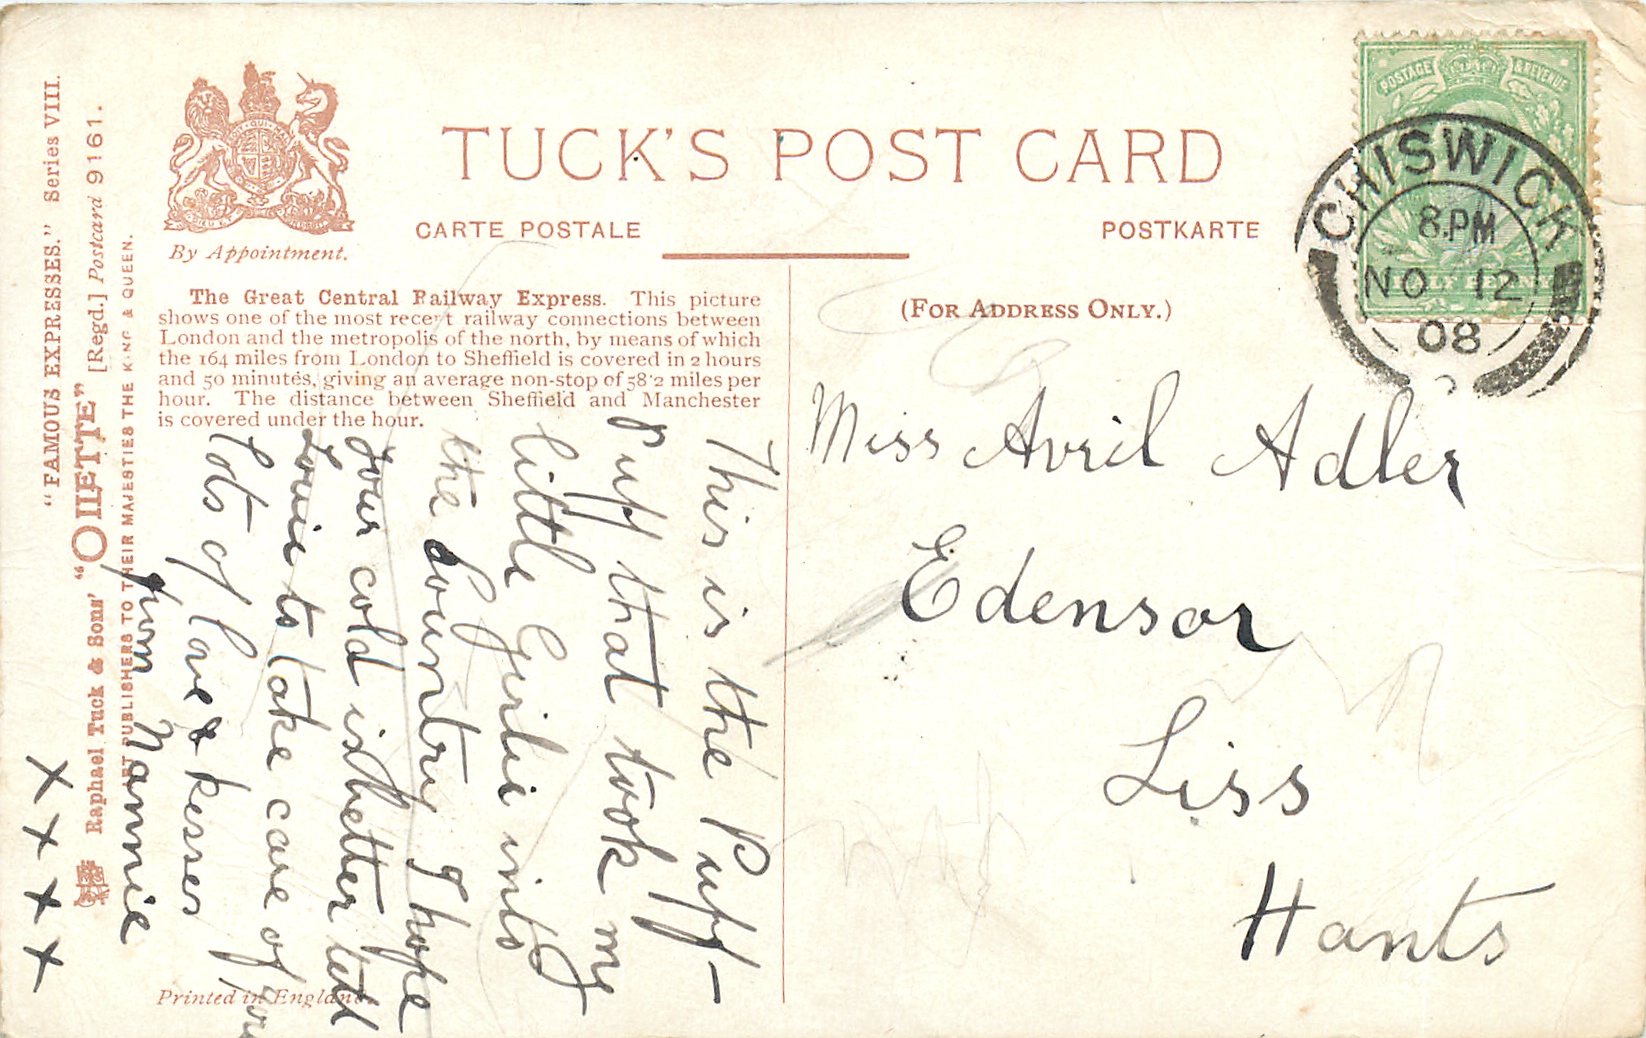 "FAMOUS EXPRESSES." Series VIII.
Raphael Tuck & Sons' "OILETTE" [Regd.] Postcard 9161.
ART PUBLISHERS TO THEIR MAJESTIES THE KING & QUEEN.
By Appointment.
TUCK'S POST CARD
CARTE POSTALE
POSTKARTE
The Great Central Railway Express. This picture
shows one of the most recent railway connections between
London and the metropolis of the north, by means of which
the 164 miles from London to Sheffield is covered in 2 hours
and 50 minutes, giving an average non-stop of 58·2 miles per
hour. The distance between Sheffield and Manchester
is covered under the hour.
This is the Puff-
Puff that took my
little Girlie into
the Country I hope
your cold is better tell
Louie to take care of you
Lots of love & kesses
from Nannie
X X X X
Printed in England.
(FOR ADDRESS ONLY.)
Miss Avril Adler
Edensor
Liss
Hants
POSTAGE & REVENUE
HALF PENNY
CHISWICK
8. PM
NO 12
08